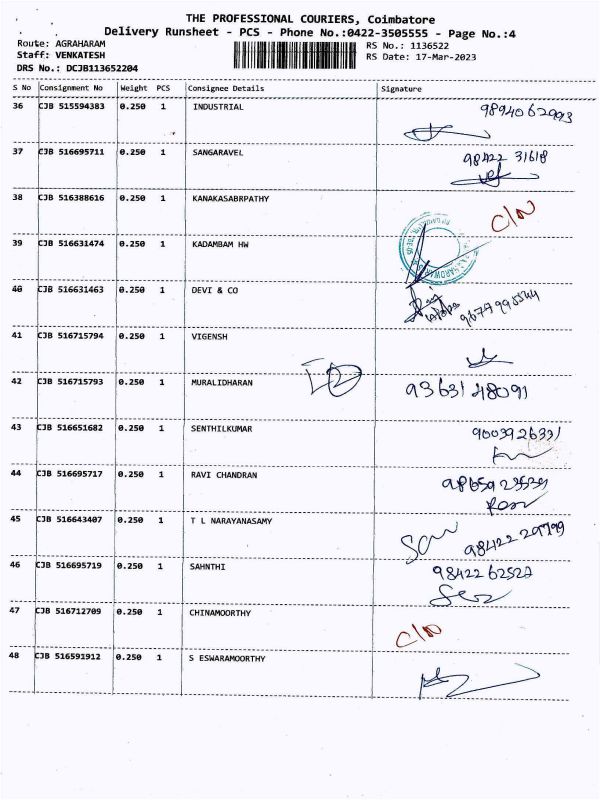 THE PROFESSIONAL COURIERS, Coimbatore
Delivery Runsheet - PCS - Phone No.:0422-3505555 - Page No.:4
Route: AGRAHARAM
RS No.: 1136522
Staff: VENKATESH
RS Date: 17-Mar-2023
DRS No.: DCJB113652204
S No Consignment No Weight PCS Consignee Details Signature
36 CJB 515594383 0.250 1 INDUSTRIAL 9894062993
37 CJB 516695711 0.250 1 SANGARAVEL 98422 31618
38 CJB 516388616 0.250 1 KANAKASABRPATHY C/N
39 CJB 516631474 0.250 1 KADAMBAM HW
40 CJB 516631463 0.250 1 DEVI & CO
41 CJB 516715794 0.250 1 VIGENSH
42 CJB 516715793 0.250 1 MURALIDHARAN 93631 48091
43 CJB 516651682 0.250 1 SENTHILKUMAR 9003926331
44 CJB 516695717 0.250 1 RAVI CHANDRAN
45 CJB 516643407 0.250 1 T L NARAYANASAMY 98422 29799
46 CJB 516695719 0.250 1 SAHNTHI 98422 62527
47 CJB 516712709 0.250 1 CHINAMOORTHY C/N
48 CJB 516591912 0.250 1 S ESWARAMOORTHY